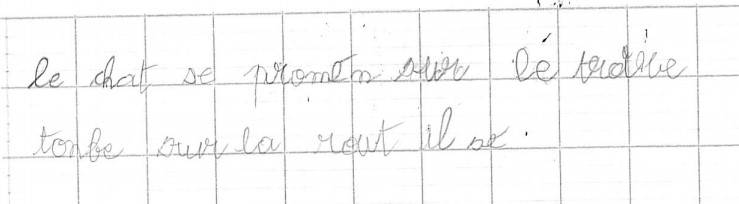 le chat se promen sur lé
tonbe sur la rout il se.